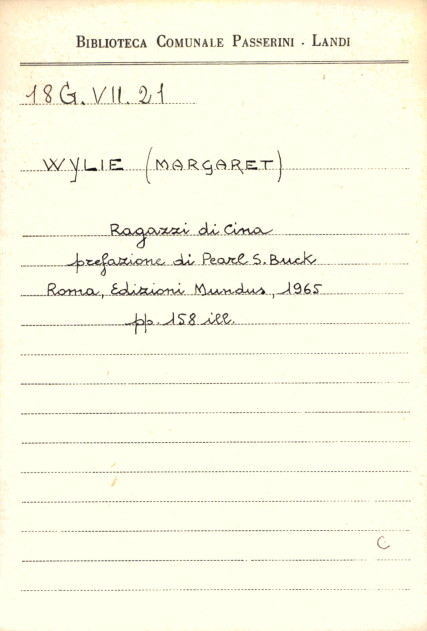 BIBLIOTECA COMUNALE PASSERINI - LANDI
18 G. VII. 21
WYLIE (MARGARET)
Ragazzi di Cina
prefazione di Pearl S. Buck
Roma, Edizioni Mundus, 1965
pp. 158 ill.
C